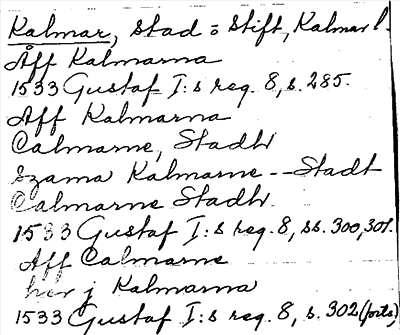 Kalmar, Stad o Stift, Kalmar l.
Åff Kalmarna
1533 Gustaf I:s reg. 8, s. 285.
Aff Kalmarna
Calmarne, Stadh
Szama Kalmarne -- Stadt
Calmarne Stadh.
1533 Gustaf I:s reg. 8, ss. 300, 301.
Aff Calmarne
her j Kalmarna
1533 Gustaf I:s reg. 8, s. 302 (forts)